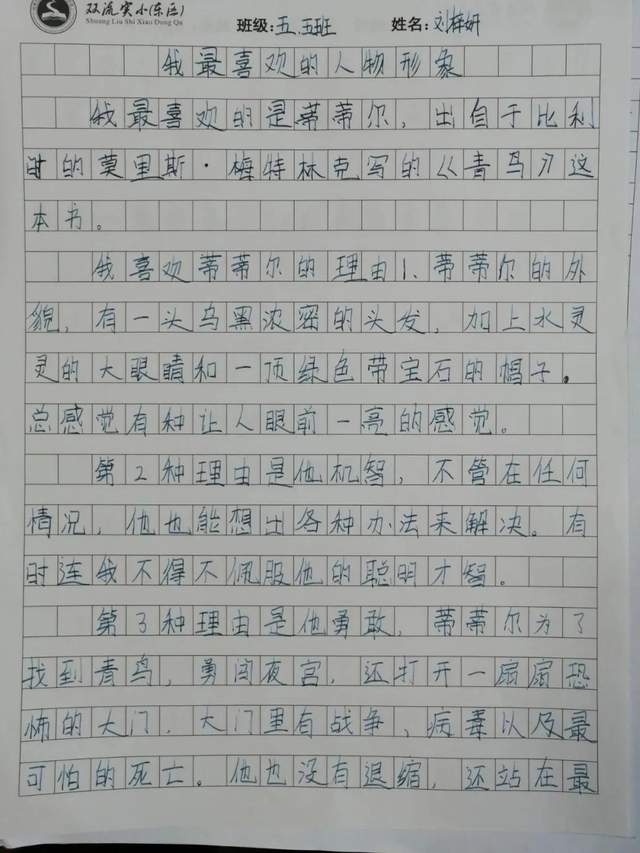 双流实小(东区)
Shuang Liu Shi Xiao Dong Qu
班级:五.五班 姓名:刘梓妍
我最喜欢的人物形象
我最喜欢的是蒂蒂尔，出自于比利
时的莫里斯·梅特林克写的《青鸟》这
本书。
我喜欢蒂蒂尔的理由1、蒂蒂尔的外
貌，有一头乌黑浓密的头发，加上水灵
灵的大眼睛和一顶绿色带宝石的帽子。
总感觉有种让人眼前一亮的感觉。
第2种理由是他机智，不管在任何
情况，他也能想出各种办法来解决。有
时连我不得不佩服他的聪明才智。
第3种理由是他勇敢，蒂蒂尔为了
找到青鸟，勇闯夜宫，还打开一扇扇恐
怖的大门，大门里有战争，病毒以及最
可怕的死亡。他也没有退缩，还站在最